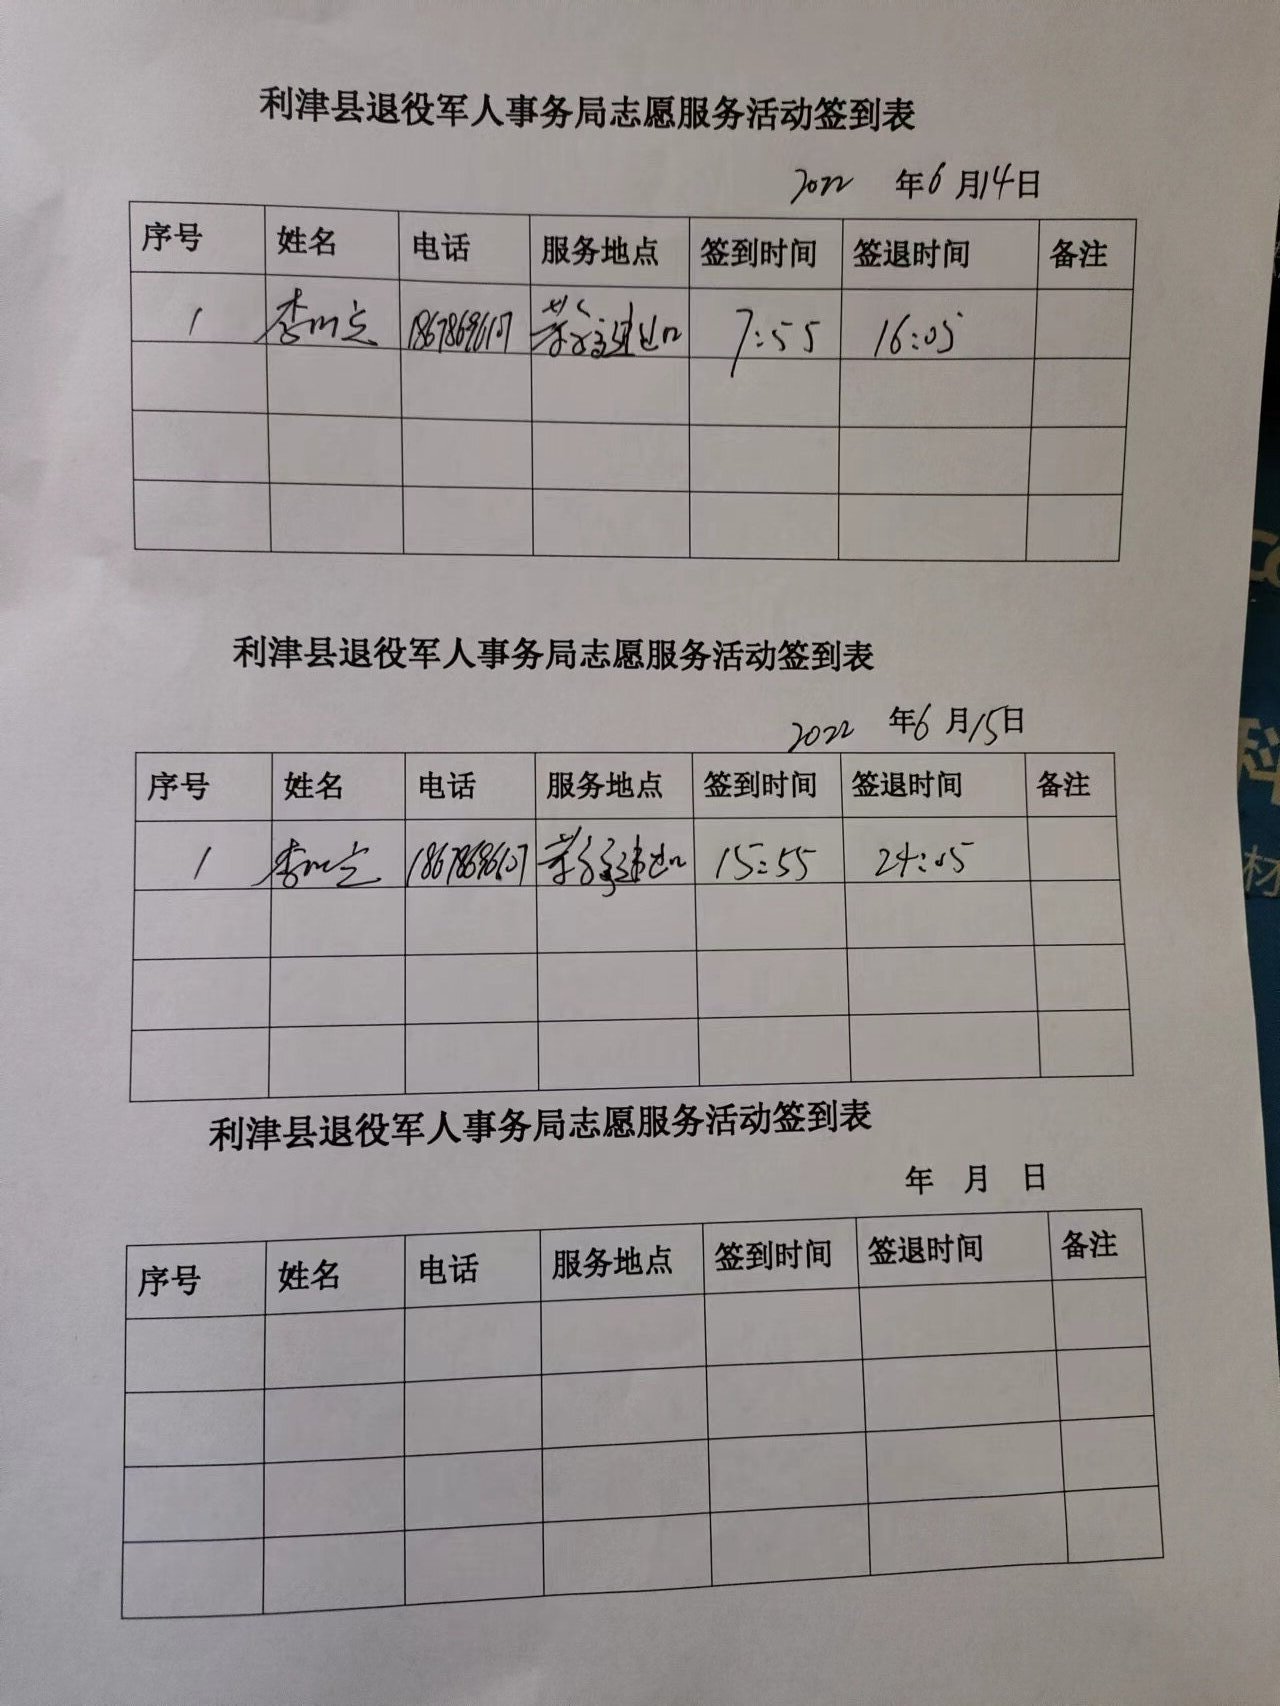 利津县退役军人事务局志愿服务活动签到表
2022 年6月14日
序号 姓名 电话 服务地点 签到时间 签退时间 备注
1 李 7:55 16:05
利津县退役军人事务局志愿服务活动签到表
2022 年6月15日
序号 姓名 电话 服务地点 签到时间 签退时间 备注
1 李 15:55 24:05
利津县退役军人事务局志愿服务活动签到表
年 月 日
序号 姓名 电话 服务地点 签到时间 签退时间 备注
材